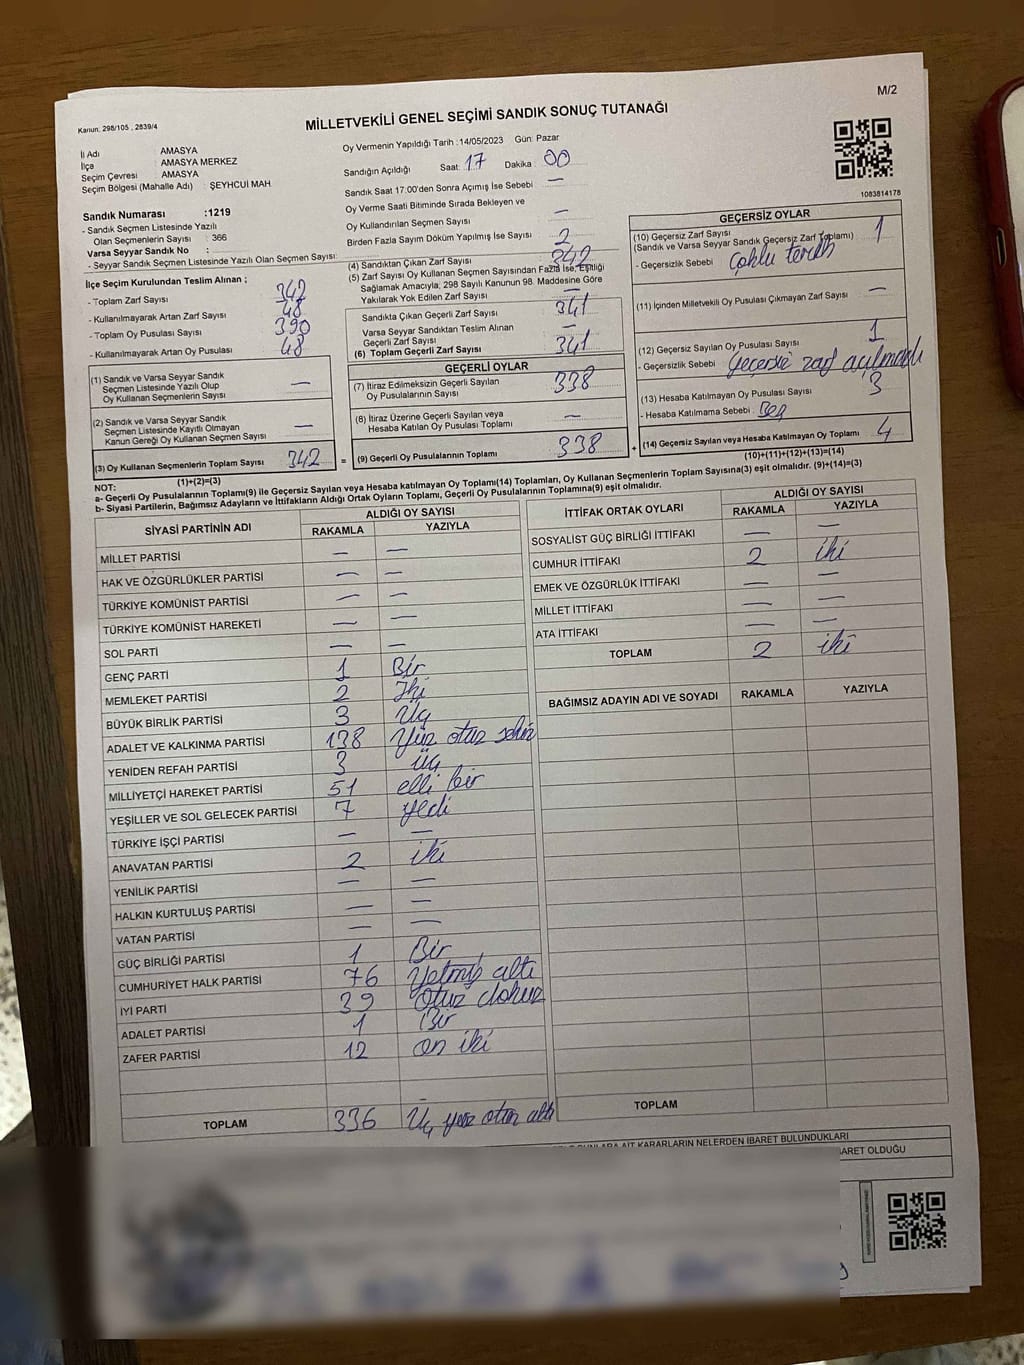 M/2
Kanun, 298/105 , 2839/4
MİLLETVEKİLİ GENEL SEÇİMİ SANDIK SONUÇ TUTANAĞI
İl Adı : AMASYA
İlçe : AMASYA MERKEZ
Seçim Çevresi : AMASYA
Seçim Bölgesi (Mahalle Adı) : ŞEYHCUİ MAH
Sandık Numarası :1219
- Sandık Seçmen Listesinde Yazılı
Olan Seçmenlerin Sayısı : 366
Varsa Seyyar Sandık No :
- Seyyar Sandık Seçmen Listesinde Yazılı Olan Seçmen Sayısı:
Oy Vermenin Yapıldığı Tarih :14/05/2023 Gün: Pazar
Sandığın Açıldığı Saat: 17 Dakika : 00
Sandık Saat 17:00'den Sonra Açımış İse Sebebi —
Oy Verme Saati Bitiminde Sırada Bekleyen ve
Oy Kullandırılan Seçmen Sayısı —
Birden Fazla Sayım Döküm Yapılmış İse Sayısı 2
1083814178
İlçe Seçim Kurulundan Teslim Alınan ;
- Toplam Zarf Sayısı 342
- Kullanılmayarak Artan Zarf Sayısı 48
- Toplam Oy Pusulası Sayısı 390
- Kullanılmayarak Artan Oy Pusulası 48
(1) Sandık ve Varsa Seyyar Sandık
Seçmen Listesinde Yazılı Olup
Oy Kullanan Seçmenlerin Sayısı —
(2) Sandık ve Varsa Seyyar Sandık
Seçmen Listesinde Kayıtlı Olmayan
Kanun Gereği Oy Kullanan Seçmen Sayısı —
(3) Oy Kullanan Seçmenlerin Toplam Sayısı 342
(1)+(2)=(3)
(4) Sandıktan Çıkan Zarf Sayısı 342
(5) Zarf Sayısı Oy Kullanan Seçmen Sayısından Fazla İse, Eşitliği
Sağlamak Amacıyla, 298 Sayılı Kanunun 98. Maddesine Göre
Yakılarak Yok Edilen Zarf Sayısı —
Sandıkta Çıkan Geçerli Zarf Sayısı 341
Varsa Seyyar Sandıktan Teslim Alınan
Geçerli Zarf Sayısı —
(6) Toplam Geçerli Zarf Sayısı 341
GEÇERLİ OYLAR
(7) İtiraz Edilmeksizin Geçerli Sayılan
Oy Pusulalarının Sayısı 338
(8) İtiraz Üzerine Geçerli Sayılan veya
Hesaba Katılan Oy Pusulası Toplamı —
= (9) Geçerli Oy Pusulalarının Toplamı 338
GEÇERSİZ OYLAR
(10) Geçersiz Zarf Sayısı
(Sandık ve Varsa Seyyar Sandık Geçersiz Zarf Toplamı) 1
- Geçersizlik Sebebi Çoklu tercih
(11) İçinden Milletvekili Oy Pusulası Çıkmayan Zarf Sayısı —
(12) Geçersiz Sayılan Oy Pusulası Sayısı 1
- Geçersizlik Sebebi Geçersiz zarf açılmadı
(13) Hesaba Katılmayan Oy Pusulası Sayısı 3
- Hesaba Katılmama Sebebi : Boş
+ (14) Geçersiz Sayılan veya Hesaba Katılmayan Oy Toplamı 4
(10)+(11)+(12)+(13)=(14)
NOT:
a- Geçerli Oy Pusulalarının Toplamı(9) ile Geçersiz Sayılan veya Hesaba Katılmayan Oy Toplamı(14) Toplamları, Oy Kullanan Seçmenlerin Toplam Sayısına(3) eşit olmalıdır. (9)+(14)=(3)
b- Siyasi Partilerin, Bağımsız Adayların ve İttifakların Aldığı Ortak Oyların Toplamı, Geçerli Oy Pusulalarının Toplamına(9) eşit olmalıdır.
SİYASİ PARTİNİN ADI ALDIĞI OY SAYISI
RAKAMLA YAZIYLA
MİLLET PARTİSİ — —
HAK VE ÖZGÜRLÜKLER PARTİSİ — —
TÜRKİYE KOMÜNİST PARTİSİ — —
TÜRKİYE KOMÜNİST HAREKETİ — —
SOL PARTİ — —
GENÇ PARTİ 1 Bir
MEMLEKET PARTİSİ 2 İki
BÜYÜK BİRLİK PARTİSİ 3 Üç
ADALET VE KALKINMA PARTİSİ 138 Yüz otuz sekiz
YENİDEN REFAH PARTİSİ 3 üç
MİLLİYETÇİ HAREKET PARTİSİ 51 elli bir
YEŞİLLER VE SOL GELECEK PARTİSİ 7 yedi
TÜRKİYE İŞÇİ PARTİSİ — —
ANAVATAN PARTİSİ 2 iki
YENİLİK PARTİSİ — —
HALKIN KURTULUŞ PARTİSİ — —
VATAN PARTİSİ — —
GÜÇ BİRLİĞİ PARTİSİ 1 Bir
CUMHURİYET HALK PARTİSİ 76 Yetmiş altı
İYİ PARTİ 39 Otuz dokuz
ADALET PARTİSİ 1 Bir
ZAFER PARTİSİ 12 on iki
TOPLAM 336 Üç yüz otuz altı
İTTİFAK ORTAK OYLARI ALDIĞI OY SAYISI
RAKAMLA YAZIYLA
SOSYALİST GÜÇ BİRLİĞİ İTTİFAKI — —
CUMHUR İTTİFAKI 2 iki
EMEK VE ÖZGÜRLÜK İTTİFAKI — —
MİLLET İTTİFAKI — —
ATA İTTİFAKI — —
TOPLAM 2 iki
BAĞIMSIZ ADAYIN ADI VE SOYADI RAKAMLA YAZIYLA
TOPLAM
AİT KARARLARIN NELERDEN İBARET BULUNDUKLARI
OLDUĞU